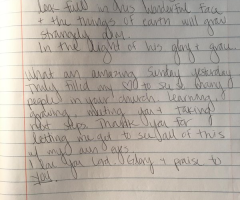 look full in his wonderful face
+ the things of earth will grow
strangely dim.
In the light of his glory + grace.
What an amazing Sunday yesterday
Truly filled my ♡ to see so many
people in your church. Learning,
growing, meeting, taking
next steps. Thank you for
letting me get to see all of this
w/ my own eyes.
I love you Lord. Glory + praise to
You!